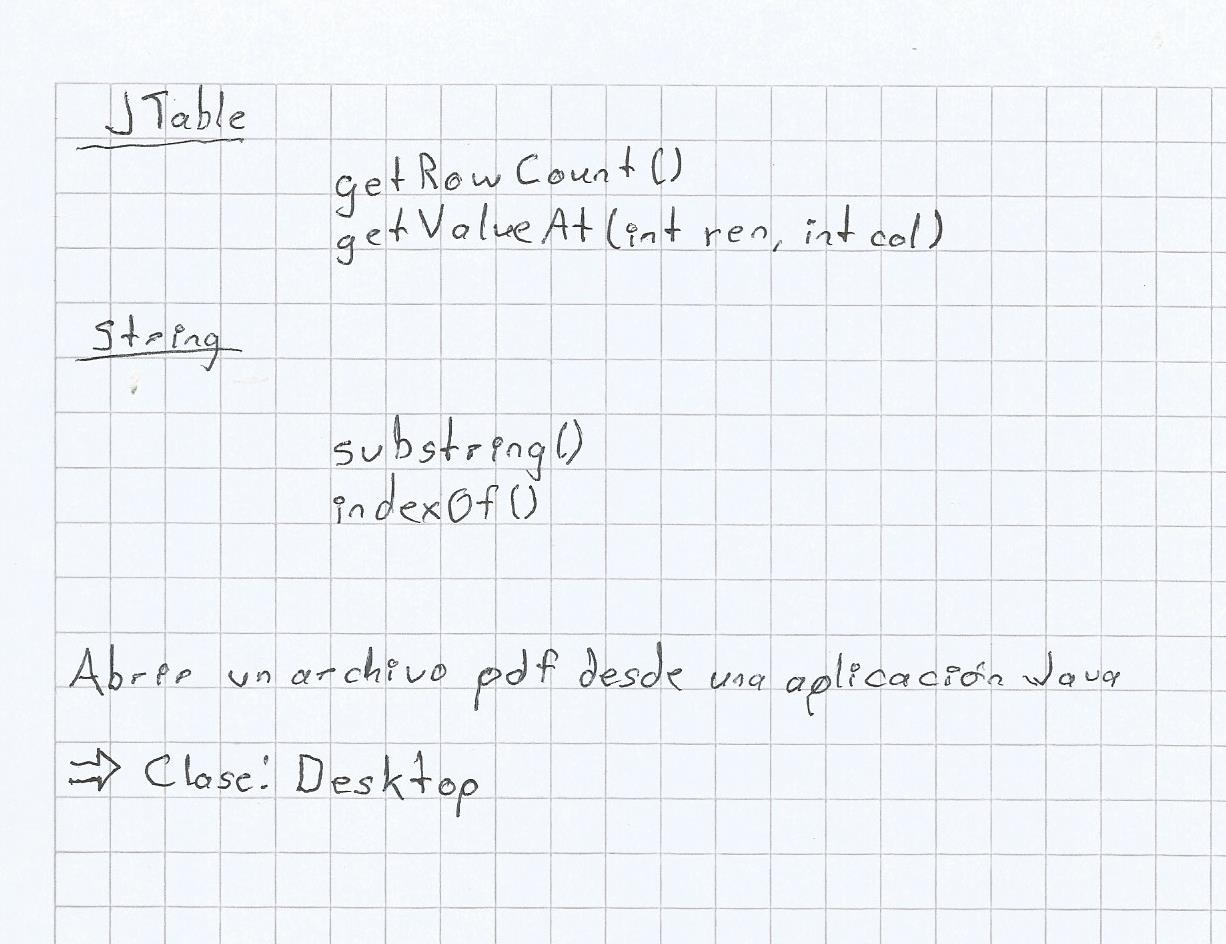 JTable
getRowCount()
getValueAt(int ren, int col)
String
substring()
indexOf()
Abrir un archivo pdf desde una aplicación Java
⇒ Clase: Desktop